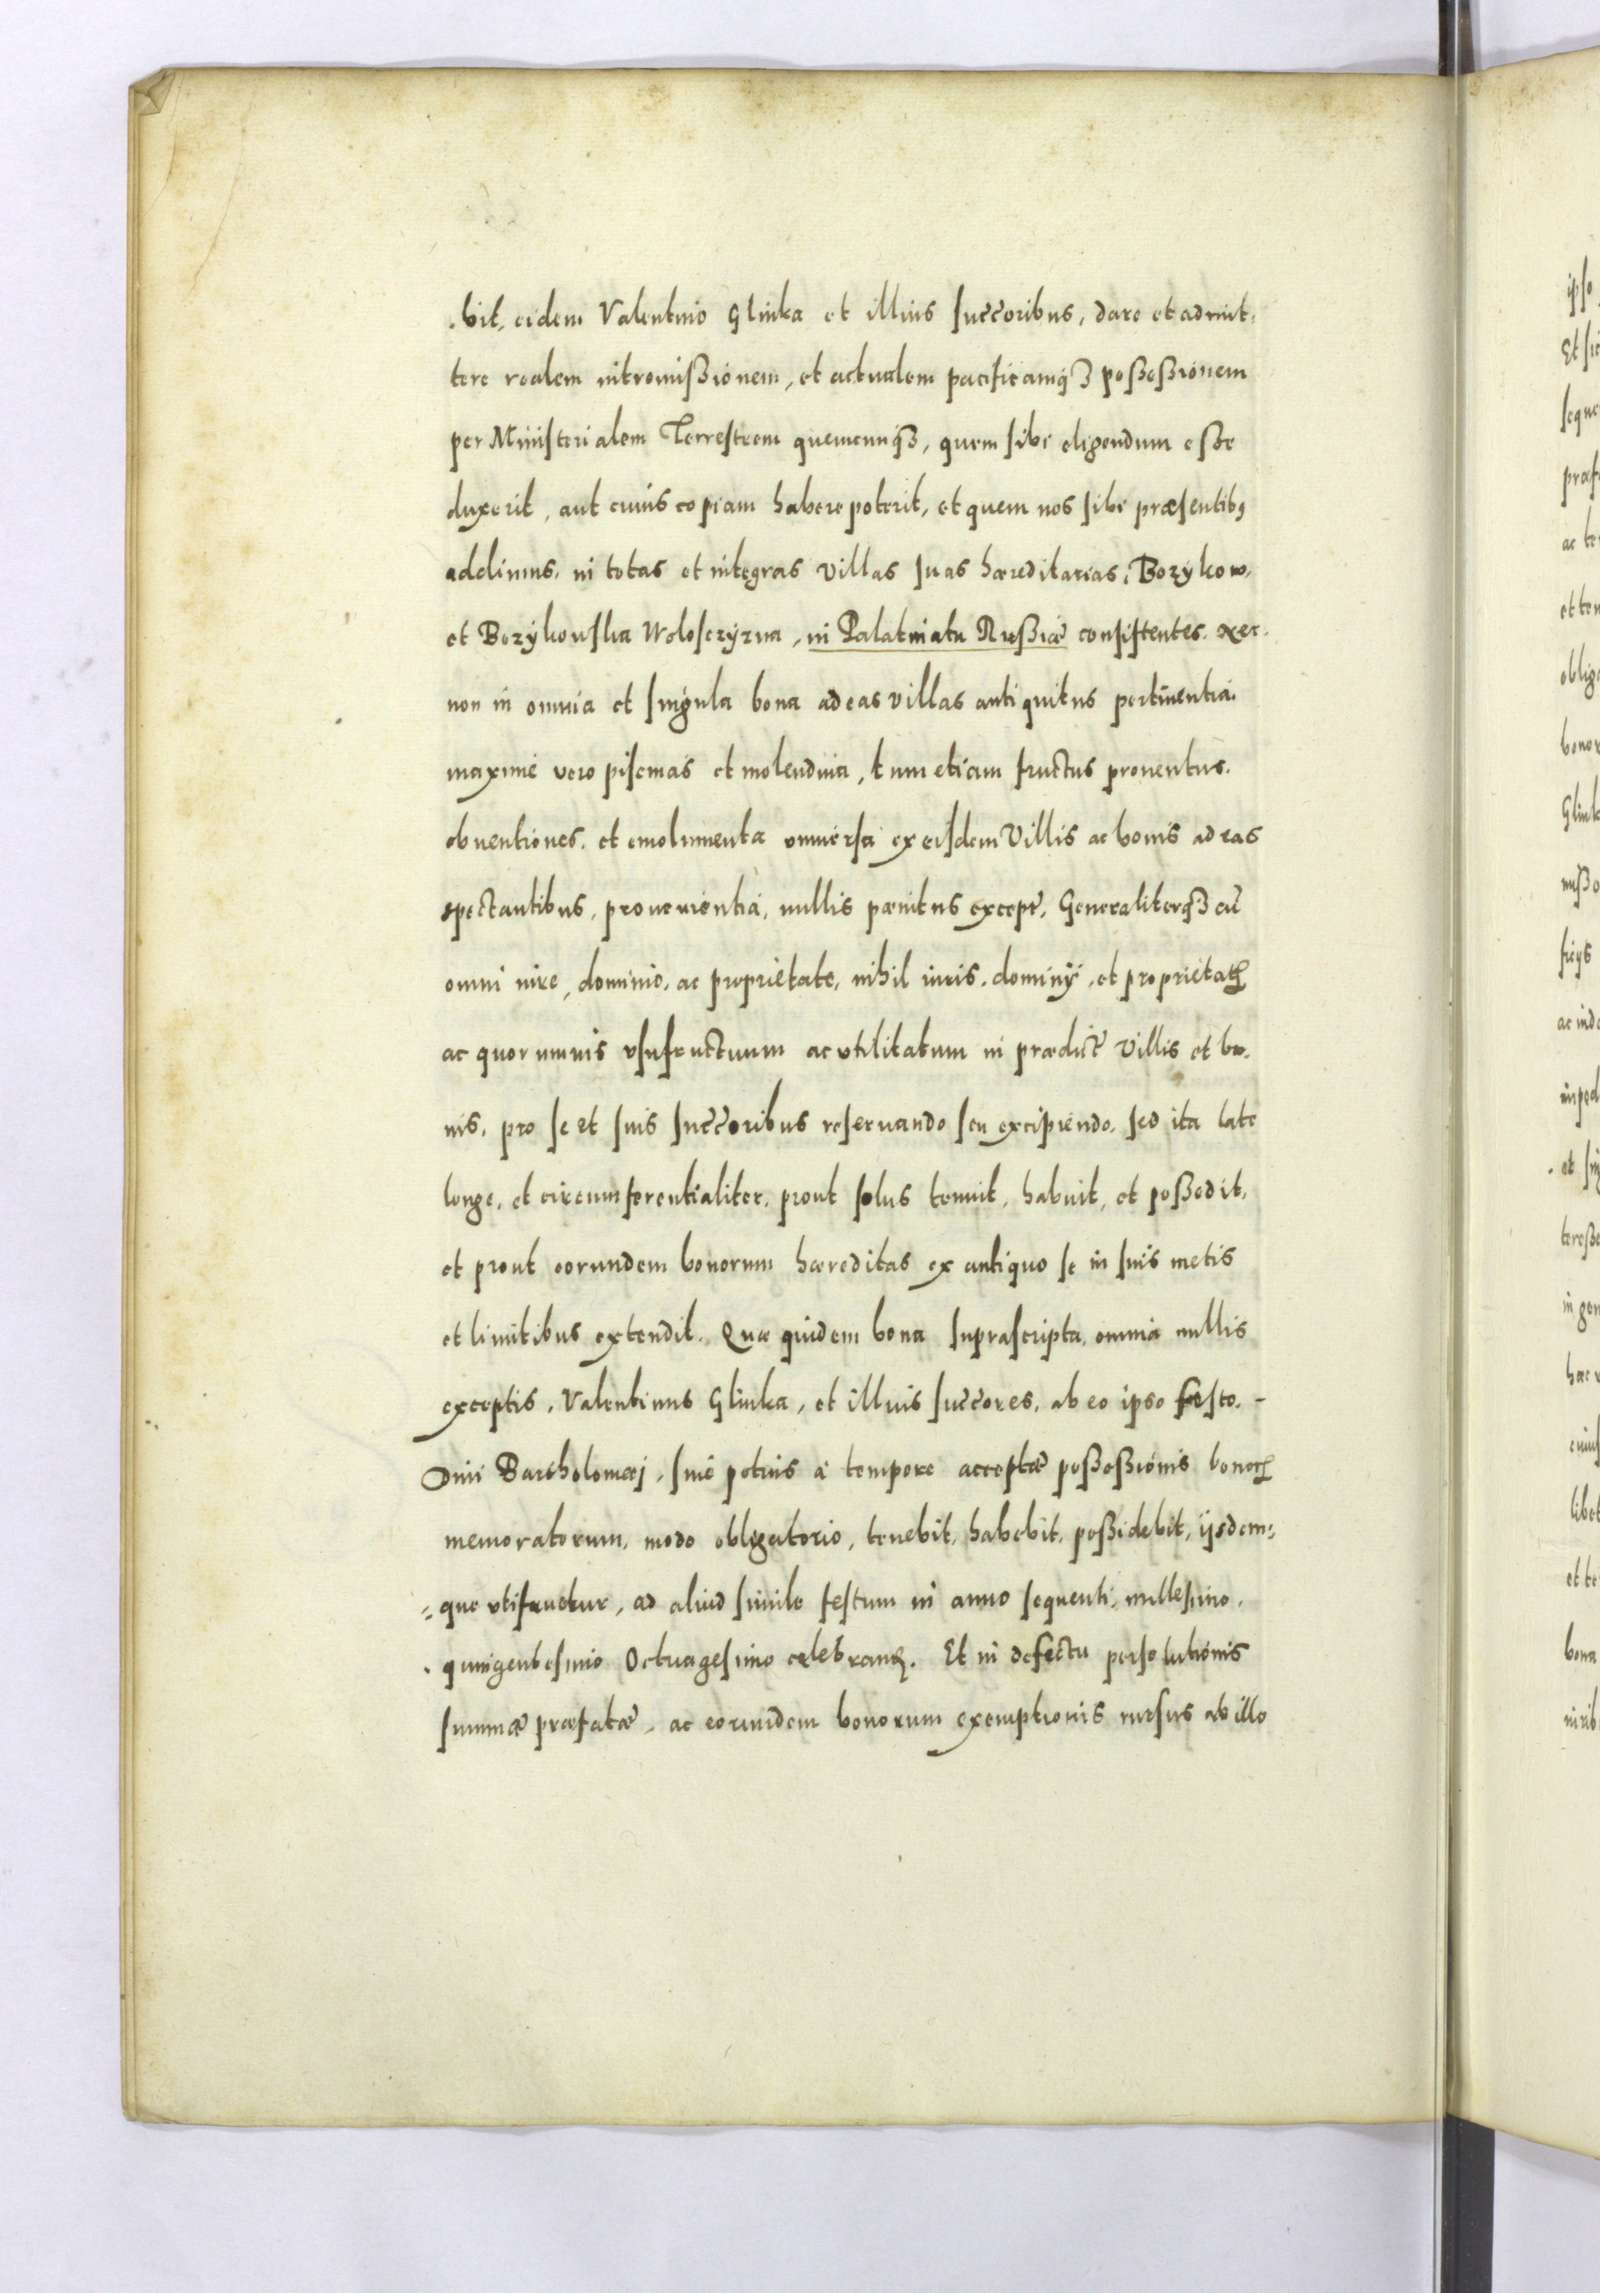 bit, eidem Valentino Glinka et illius succ̃oribus, dare et admit-
tere realem intromißionem, et actualem pacificamqꝫ poßeßionem
per Ministerialem Terrestrem quemcunqꝫ, quem sibi eligendum eße
duxerit, aut cuius copiam habere poterit, et quem nos sibi præsentibꝰ
addimus, in totas et integras villas suas hæreditarias, Bozykow,
et Bozykowska Wolosczyzna, in Palatinatu Rußiæ consistentes. nec
non in omnia et singula bona ad eas villas antiquitus pertinentia.
maxime vero piscinas et molendina, tum etiam fructus prouentus.
obuentiones. et emolumenta vniuersa ex eisdem Villis ac bonis ad eas
spectantibus, prouenientia, nullis pænitus except̃. Generaliterqꝫ cũ
omni iure, dominio, ac proprietate, nihil iuris, dominÿ, et proprietatꝭ
ac quorumuis vsufructuum ac vtilitatum in prædict̃ Villis et bo-
nis, pro se et suis succ̃oribus reseruando seu excipiendo. sed ita late
longe, et circumferentialiter, prout solus tenuit, habuit, et poßedit,
et prout eorundem bonorum hæreditas ex antiquo se in suis metis
et limitibus extendit. Quæ quidem bona suprascripta, omnia nullis
exceptis, Valentinus Glinka, et illius succ̃ores, ab eo ipso festo. -
Diui Bartholomæj, siue potius a tempore acceptæ poßeßionis bonorꝝ
memoratorum, modo obligatorio, tenebit, habebit, poßidebit, ijsdem-
=que vtifruetur, ad aliud simile festum in anno sequenti, millesimo,
quingentesimo Octuagesimo celebranꝝ. Et in defectu persolutionis
summæ præfatæ, ac eorundem bonorum exemptionis rursus ab illo
ipso
Et sic
obliga
bonor
Glink
ac inde
bona